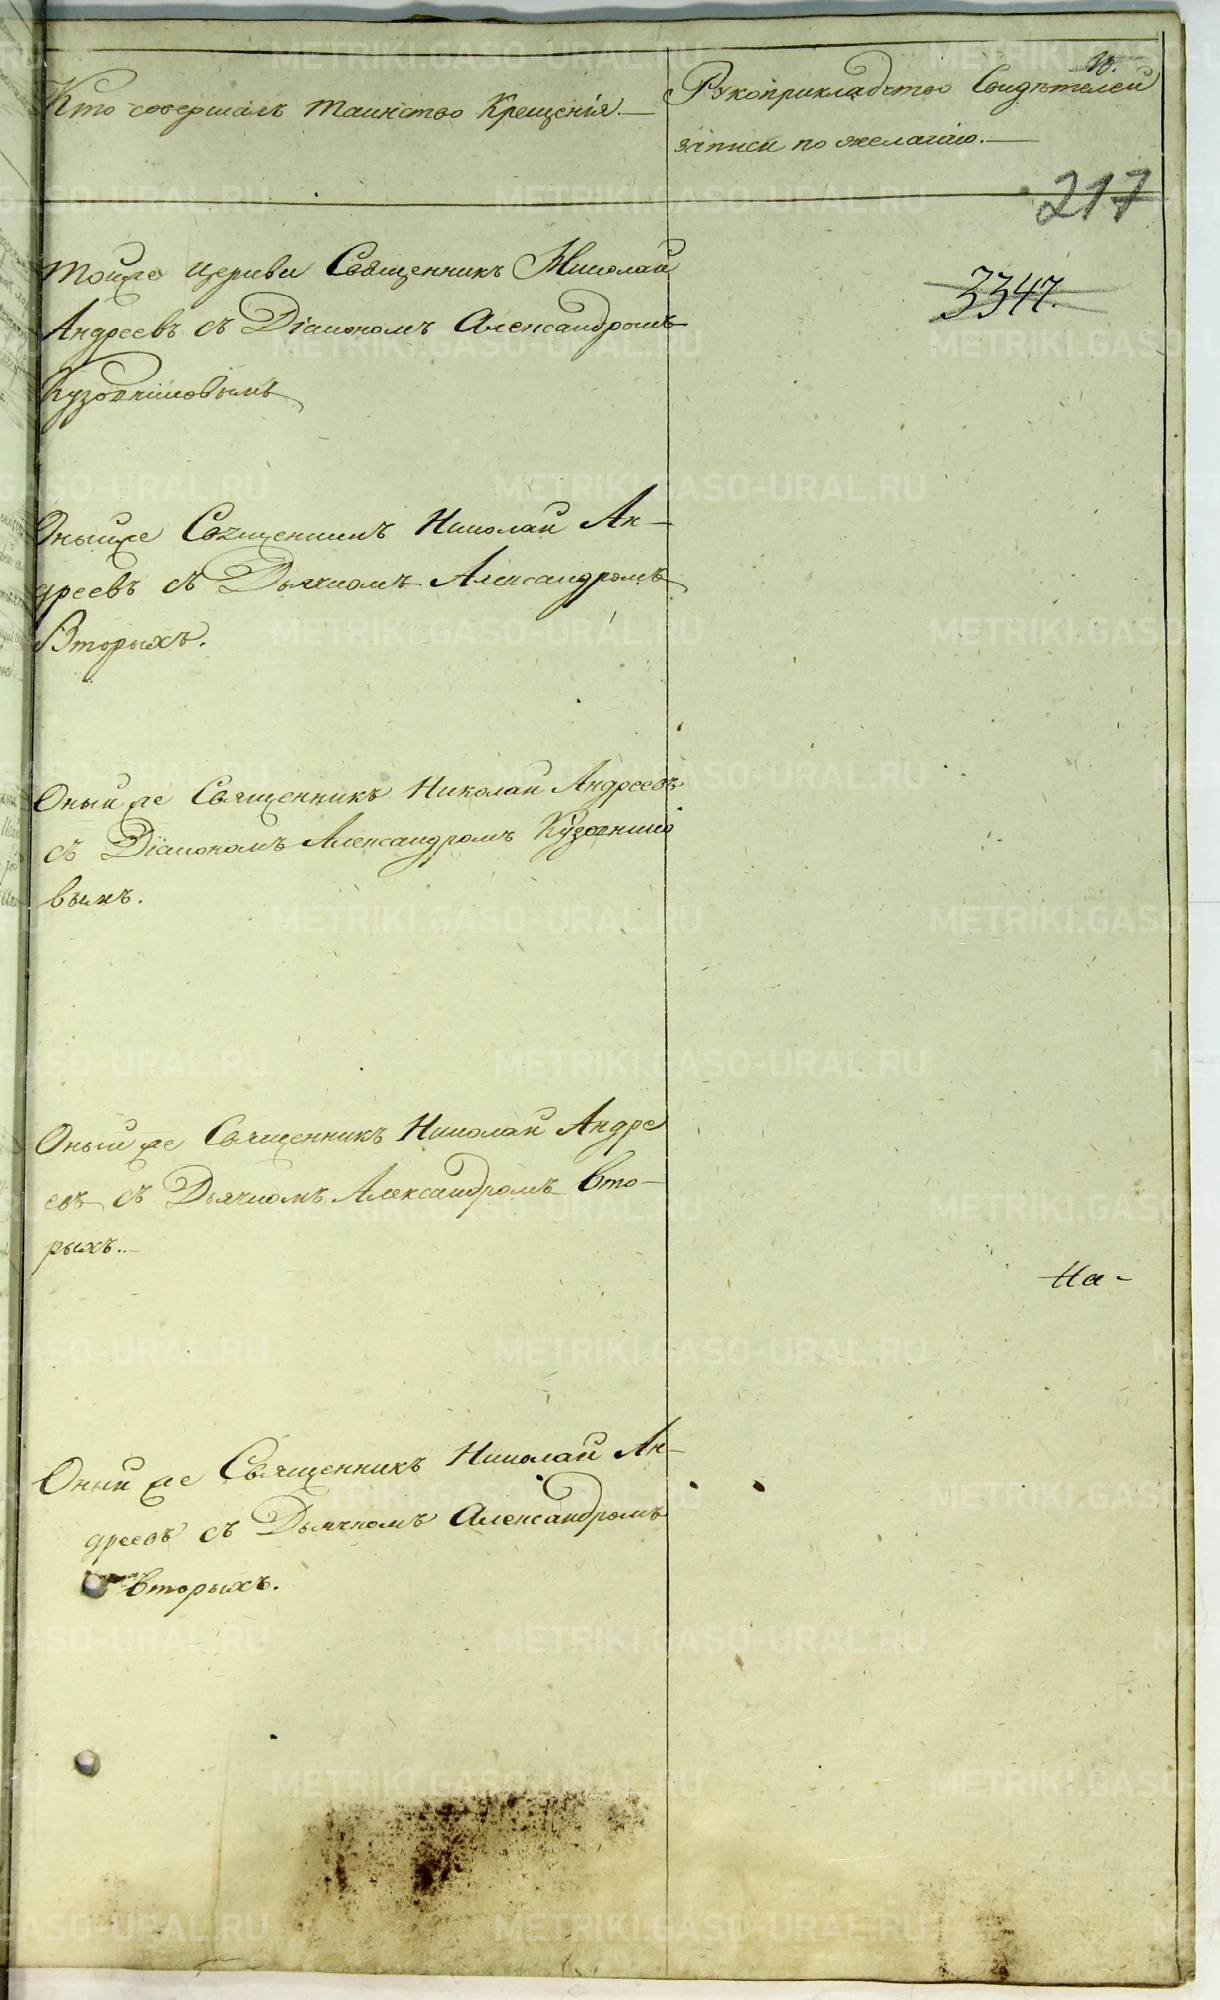 10.
Кто совершалъ таинство Крещенія.—
Рукоприкладство Свидѣтелей
записи по желанію.—
217
Тойже церкви Священникъ Николай
Андреевъ съ Діакономъ Александромъ
3347.
Оныйже Священникъ Николай Ан–
дреевъ съ Дьячкомъ Александромъ
Вторыхъ.
Оный же Священникъ Николай Андреевъ
съ Діакономъ Александромъ
вымъ.
Оный же Священникъ Николай Андре
евъ съ Дьячкомъ Александромъ Вто–
рыхъ..–
На–
Оный же Священникъ Николай Ан–
дреевъ съ Дьячкомъ Александромъ
Вторыхъ.
METRIKI.GASO-URAL.RU